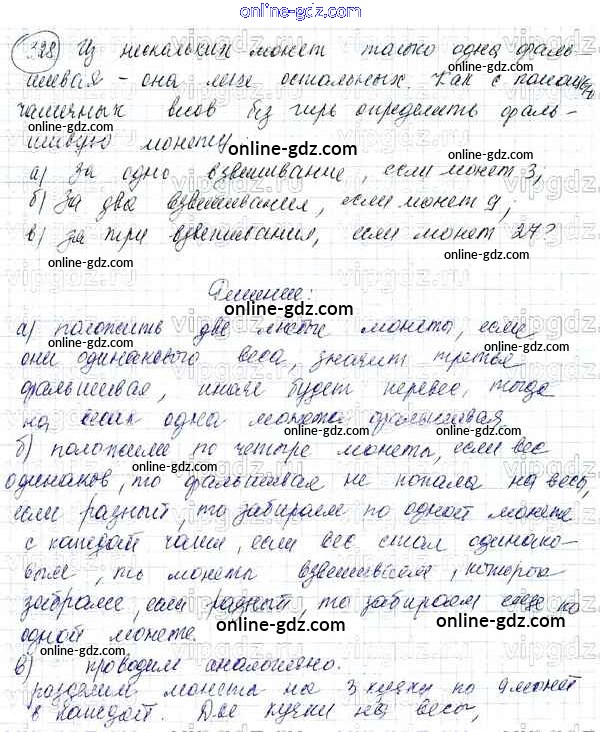 online-gdz.com
328) Из нескольких монет только одна фаль-
шивая – она легче остальных. Как с помощью
чашечных весов без гирь определить фаль-
шивую монету
online-gdz.com
а) За одно взвешивание, если монет 3;
б) За два взвешивания, если монет 9;
в) за три взвешивания, если монет 27?
online-gdz.com
Решение:
online-gdz.com
а) положить две любые монеты, если
они одинакового веса, значит третья
фальшивая, иначе будет перевес, тогда
на одна монета фальшивая
online-gdz.com
б) положим по четыре монеты, если вес
одинаков, то фальшивая не попала на весы,
online-gdz.com
если разный, то забираем по одной монете
с каждой чаши, если вес стал одинако-
вым, то монеты которые
online-gdz.com
забрали, если разный, то забираем еще по
одной монете
online-gdz.com
в) проводим аналогично.
online-gdz.com
разделим монеты на 3 кучки по 9 монет
в каждой. Две кучки на весы,
online-gdz.com